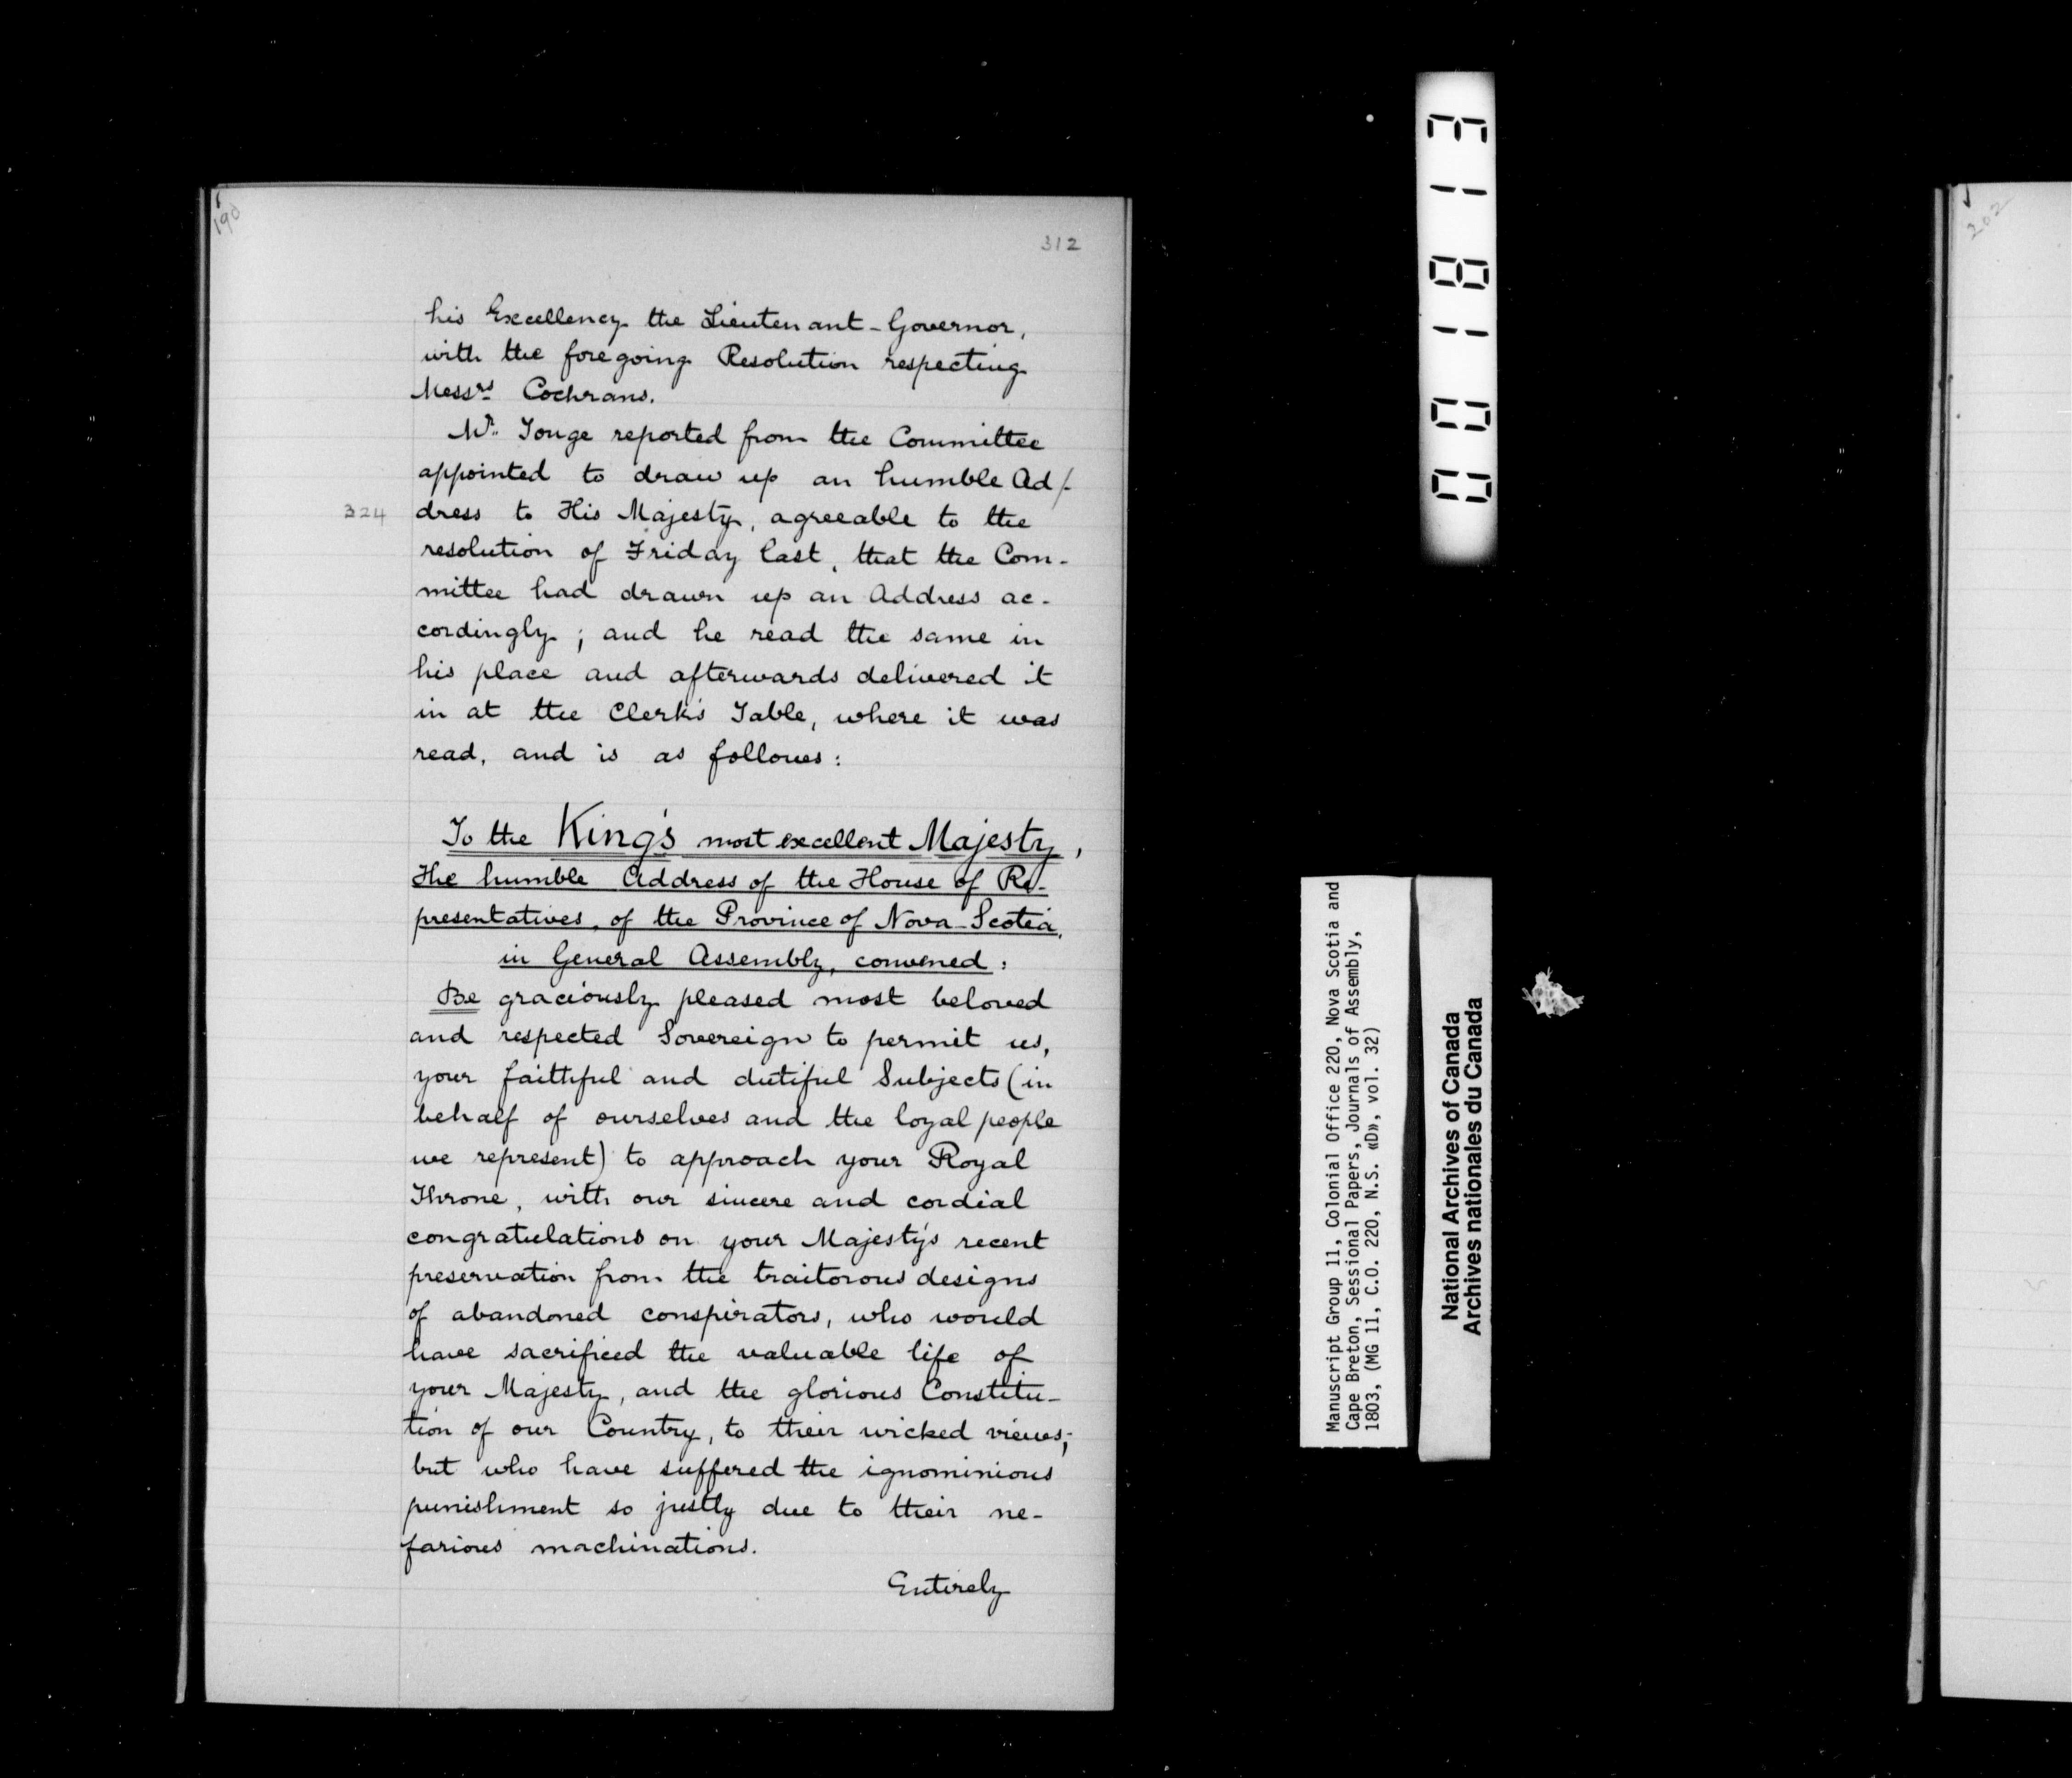 190
312
his Excellency the Lieutenant-Governor,
with the foregoing Resolution respecting
Messrs Cochrans.
Mr. Tonge reported from the Committee
appointed to draw up an humble Ad/-
324
dress to His Majesty, agreeable to the
resolution of Friday last, that the Com-
mittee had drawn up an Address ac-
cordingly; and he read the same in
his place and afterwards delivered it
in at the Clerk's Table, where it was
read, and is as follows:
To the King's most excellent Majesty,
The humble Address of the House of Re-
presentatives, of the Province of Nova-Scotia,
in General Assembly, convened:
Be graciously pleased most beloved
and respected Sovereign to permit us,
your faithful and dutiful Subjects (in
behalf of ourselves and the loyal people
we represent) to approach your Royal
Throne, with our sincere and cordial
congratulations on your Majesty's recent
preservation from the traitorous designs
of abandoned conspirators, who would
have sacrificed the valuable life of
your Majesty, and the glorious Constitu-
tion of our Country, to their wicked views;
but who have suffered the ignominious
punishment so justly due to their ne-
farious machinations.
Entirely
001813
Manuscript Group 11, Colonial Office 220, Nova Scotia and
Cape Breton, Sessional Papers, Journals of Assembly,
1803, (MG 11, C.O. 220, N.S. «D», vol. 32)
National Archives of Canada
Archives nationales du Canada
202